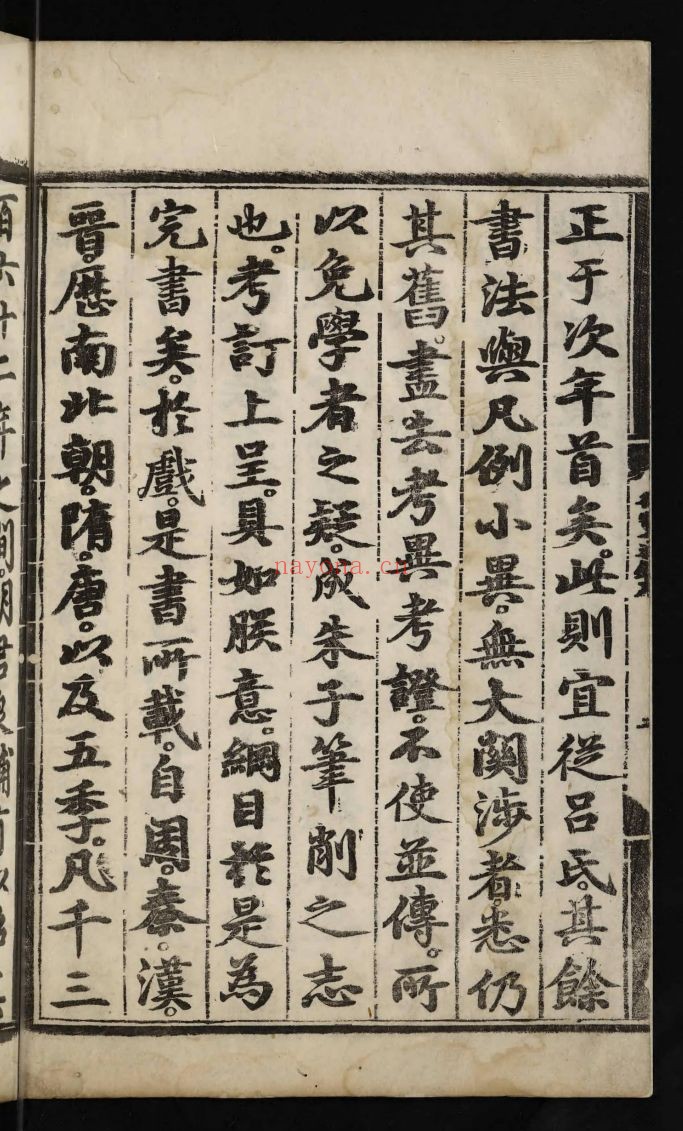 正于次年首矣。此則宜從呂氏。其餘
書法與凡例小異。無大関渉者。悉仍
其舊。盡去考異考證。不使並傳。所
以免學者之疑。成朱子筆削之志
也。考訂上呈。具如朕意。綱目於是為
完書矣。於戲。是書所載。自周。秦。漢。
晉。歷南北朝。隋。唐。以及五季。凡千三
nayona.cn